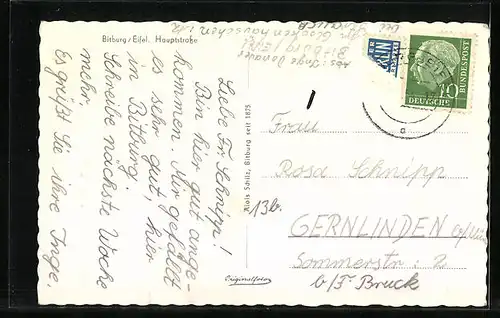 Bitburg/Eifel, Hauptstraße
Liebe Fr. Schnipp!
Bin hier gut ange-
kommen. Mir gefällt
es sehr gut, hier
in Bitburg.
Schreibe nächste Woche
mehr.
Es grüßt Sie Ihre Inge.
Abs: Inge
Bitburg/Eifel
Alois Schilz, Bitburg seit 1875
Originalfoto
NOTOPFER
BERLIN
DEUTSCHE BUNDESPOST
10
Frau
Rosa Schnipp
13b.
GERNLINDEN
Sommerstr: 2
b/F. Bruck